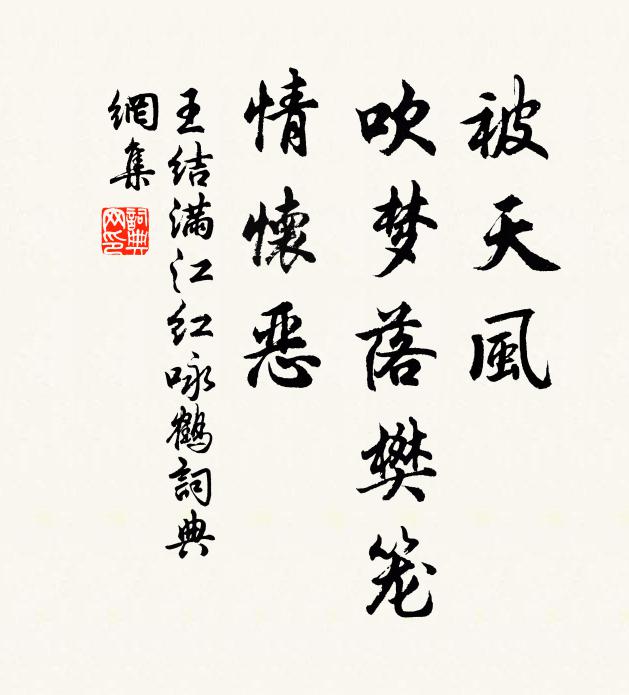 被天風
吹梦落樊笼
情懷恶
王结满江红咏鶴詞典
網集
詞典
网印